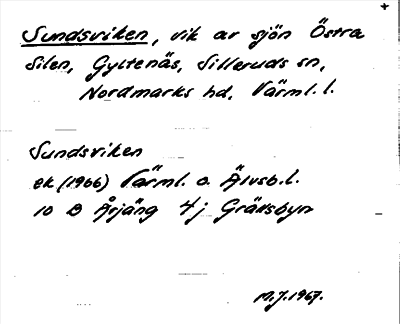 +
Sundsviken, vik av sjön Östra
Silen, Gyltenäs, Silleruds sn,
Nordmarks hd, Värml. l.
Sundsviken
ek (1966) Värml. o. Älvsb. l.
10 B Årjäng 4j Gräsbyn
M.J. 1967.